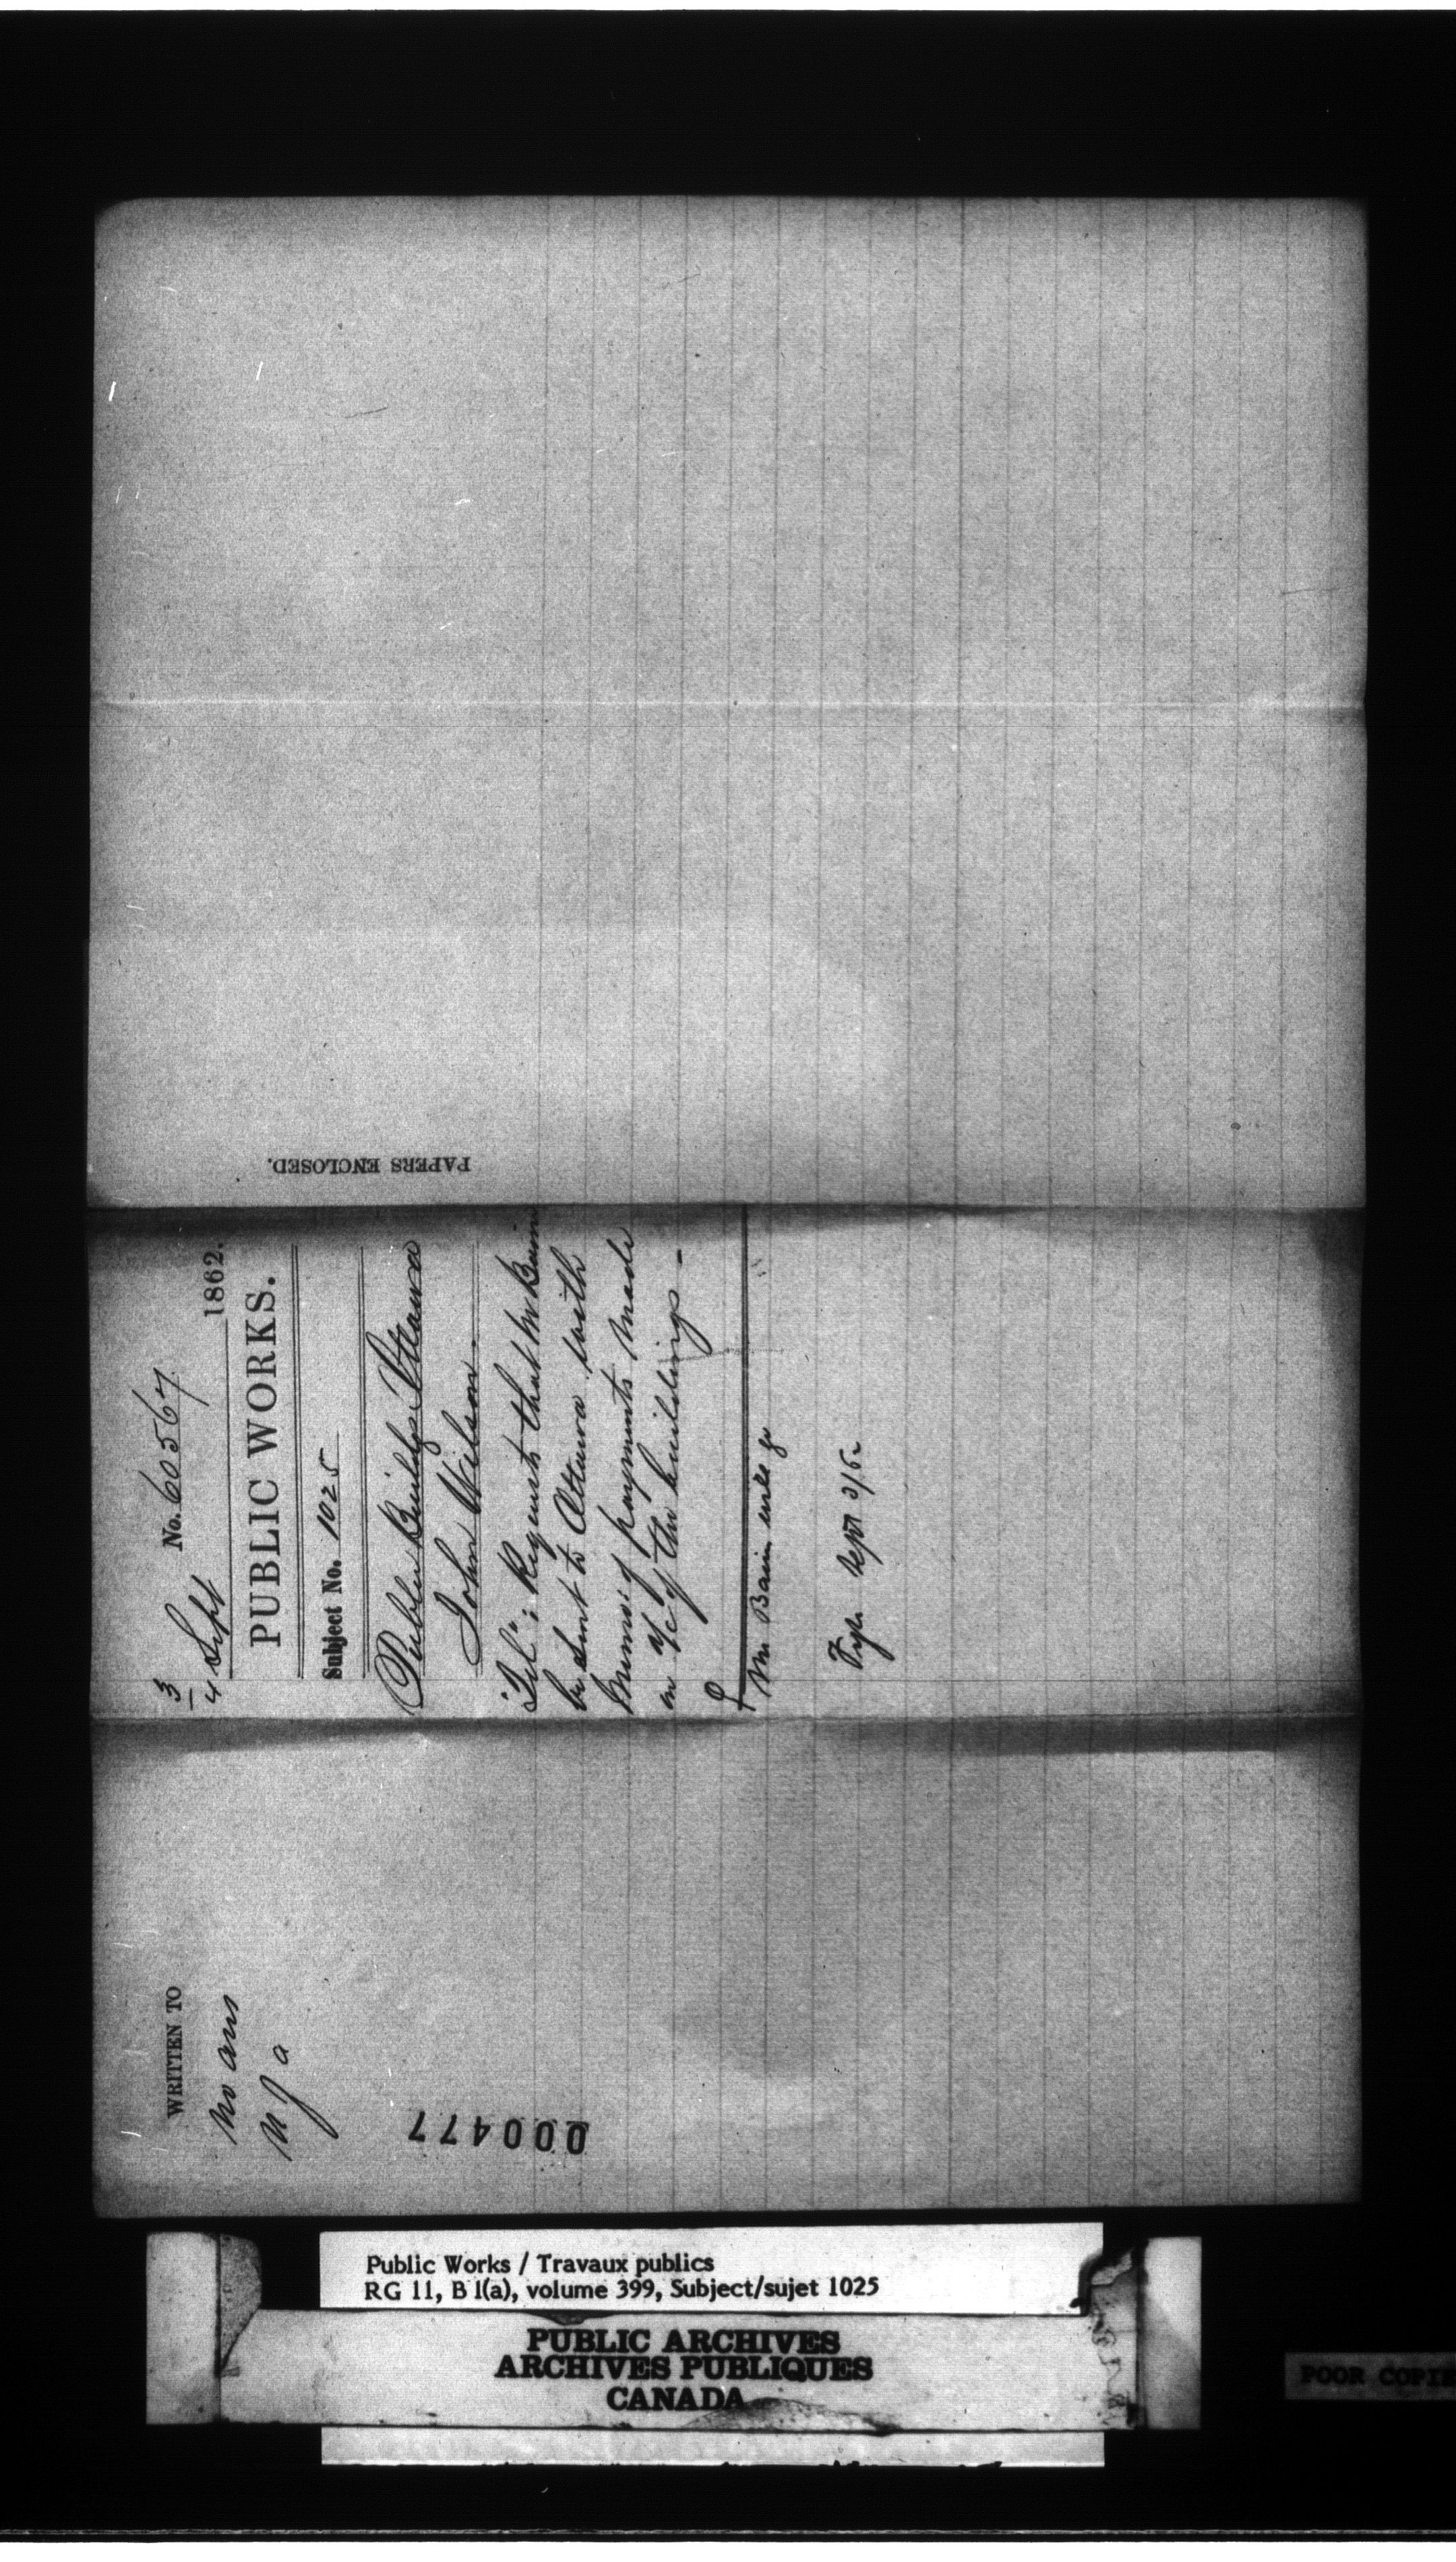 PAPERS ENCLOSED.
3/4 Sept No. 60567 1862.
PUBLIC WORKS.
Subject No. 1025
Public Buildgs Ottawa
John Wilson.
"Tel": Requests that Mr Bain
be sent to Ottawa with
Memo: of payments made
on a/c of the buildings -
Mr Bain will go
Sept 3/62
WRITTEN TO
No ans
000477
Public Works / Travaux publics
RG 11, B 1(a), volume 399, Subject/sujet 1025
PUBLIC ARCHIVES
ARCHIVES PUBLIQUES
CANADA
POOR COPIE